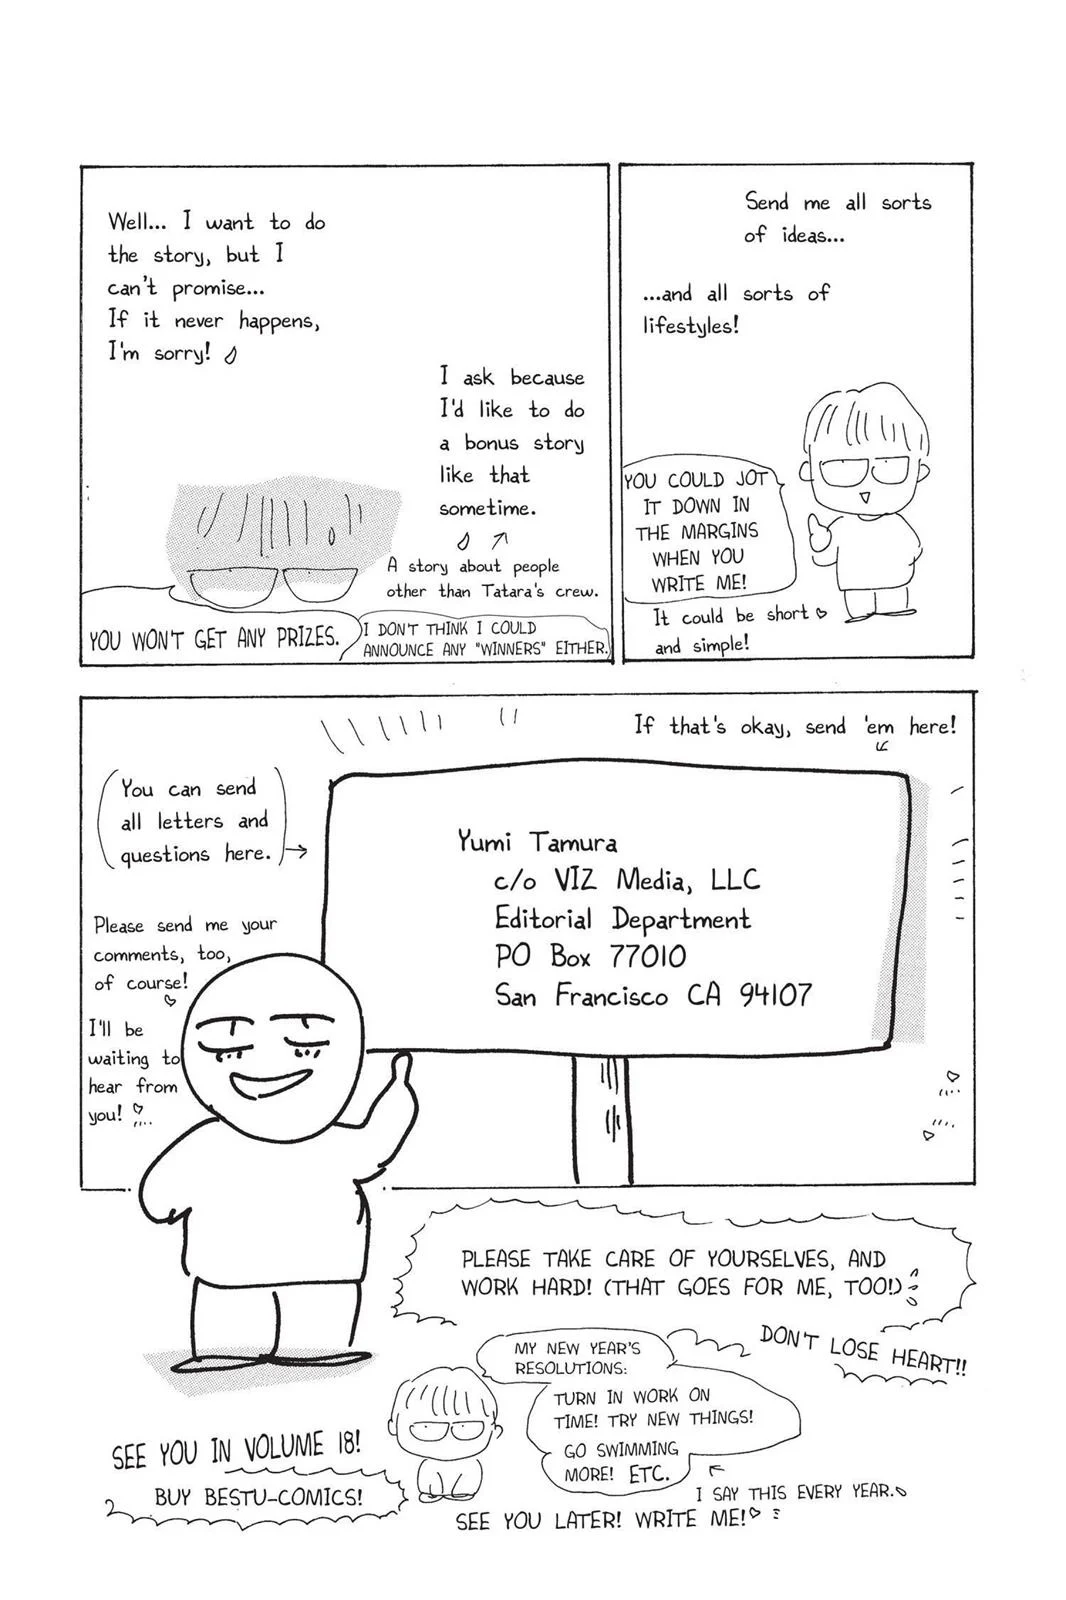 Well... I want to do
the story, but I
can't promise...
If it never happens,
I'm sorry!
I ask because
I'd like to do
a bonus story
like that
sometime.
A story about people
other than Tatara's crew.
YOU WON'T GET ANY PRIZES.
I DON'T THINK I COULD
ANNOUNCE ANY "WINNERS" EITHER.
Send me all sorts
of ideas...
...and all sorts of
lifestyles!
YOU COULD JOT
IT DOWN IN
THE MARGINS
WHEN YOU
WRITE ME!
It could be short
and simple!
If that's okay, send 'em here!
You can send
all letters and
questions here.
Yumi Tamura
c/o VIZ Media, LLC
Editorial Department
PO Box 77010
San Francisco CA 94107
Please send me your
comments, too,
of course!
I'll be
waiting to
hear from
you!
PLEASE TAKE CARE OF YOURSELVES, AND
WORK HARD! (THAT GOES FOR ME, TOO!)
DON'T LOSE HEART!!
MY NEW YEAR'S
RESOLUTIONS:
TURN IN WORK ON
TIME! TRY NEW THINGS!
GO SWIMMING
MORE! ETC.
I SAY THIS EVERY YEAR.
SEE YOU IN VOLUME 18!
BUY BESTU-COMICS!
SEE YOU LATER! WRITE ME!